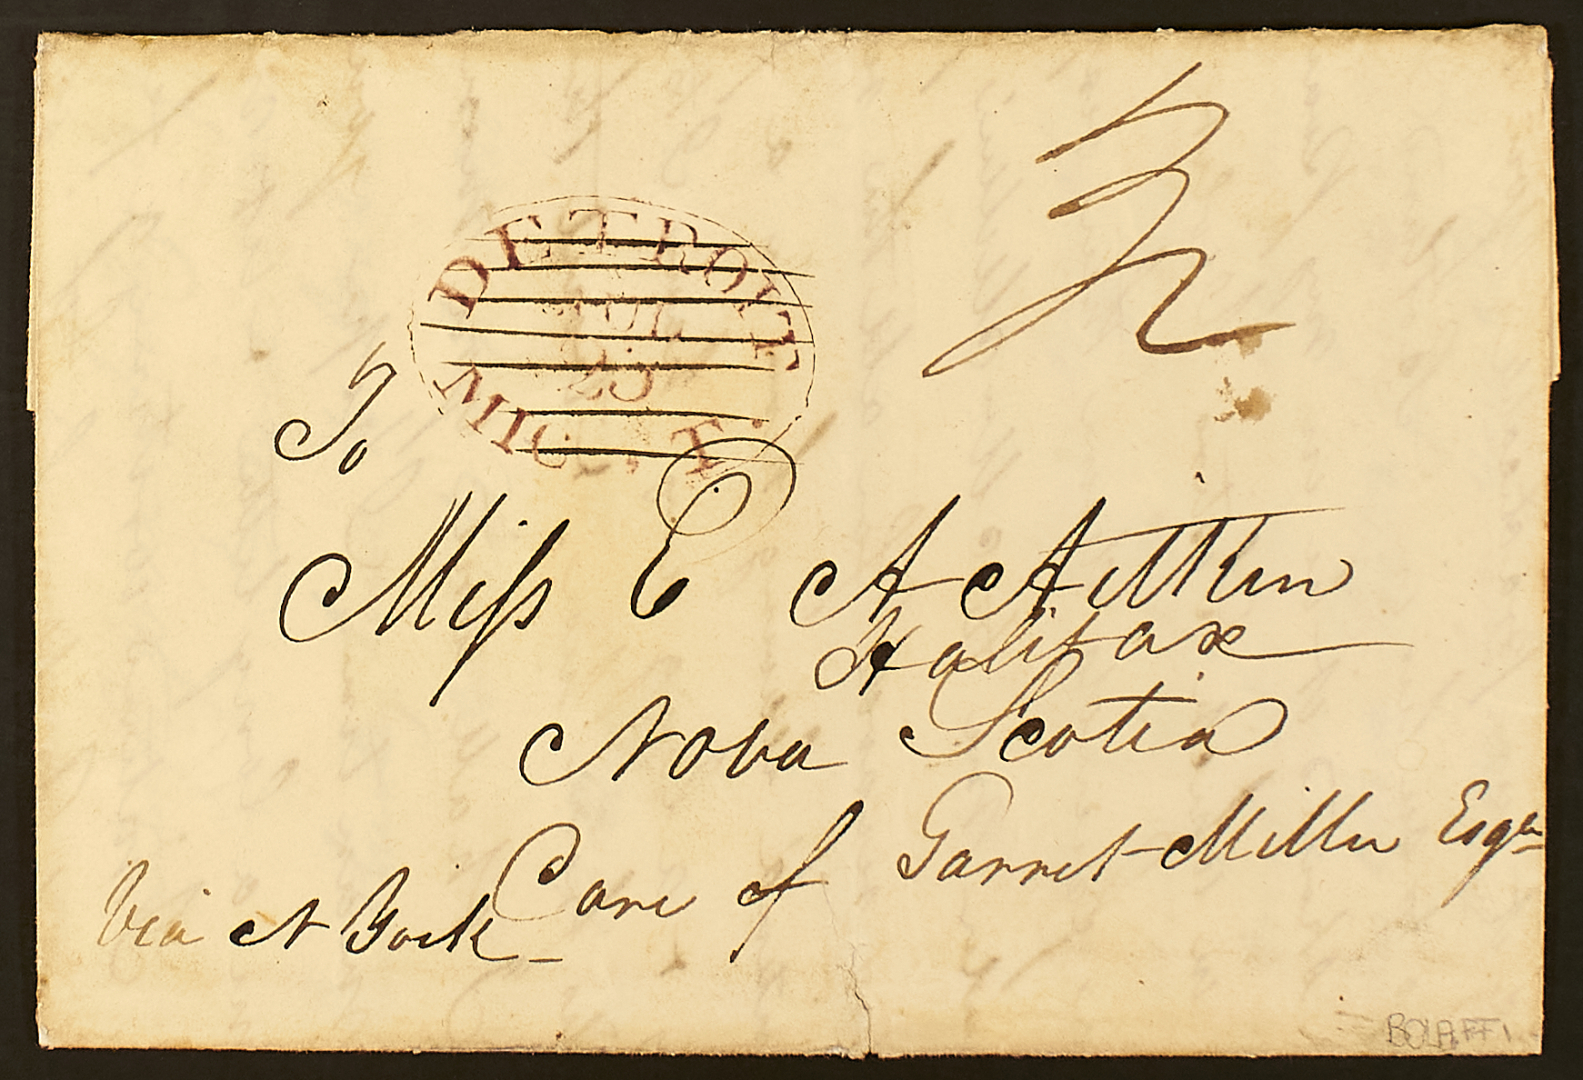 DETROIT
25
MIC. T.
To
Miss E A Aitkin
Halifax
Nova Scotia
Care of Garret Miller Esqr
Via N York
BOLAFFI